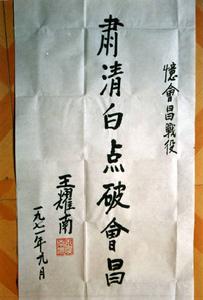 憶會昌戰役
肅清白点破會昌
王耀南
一九七一年九月